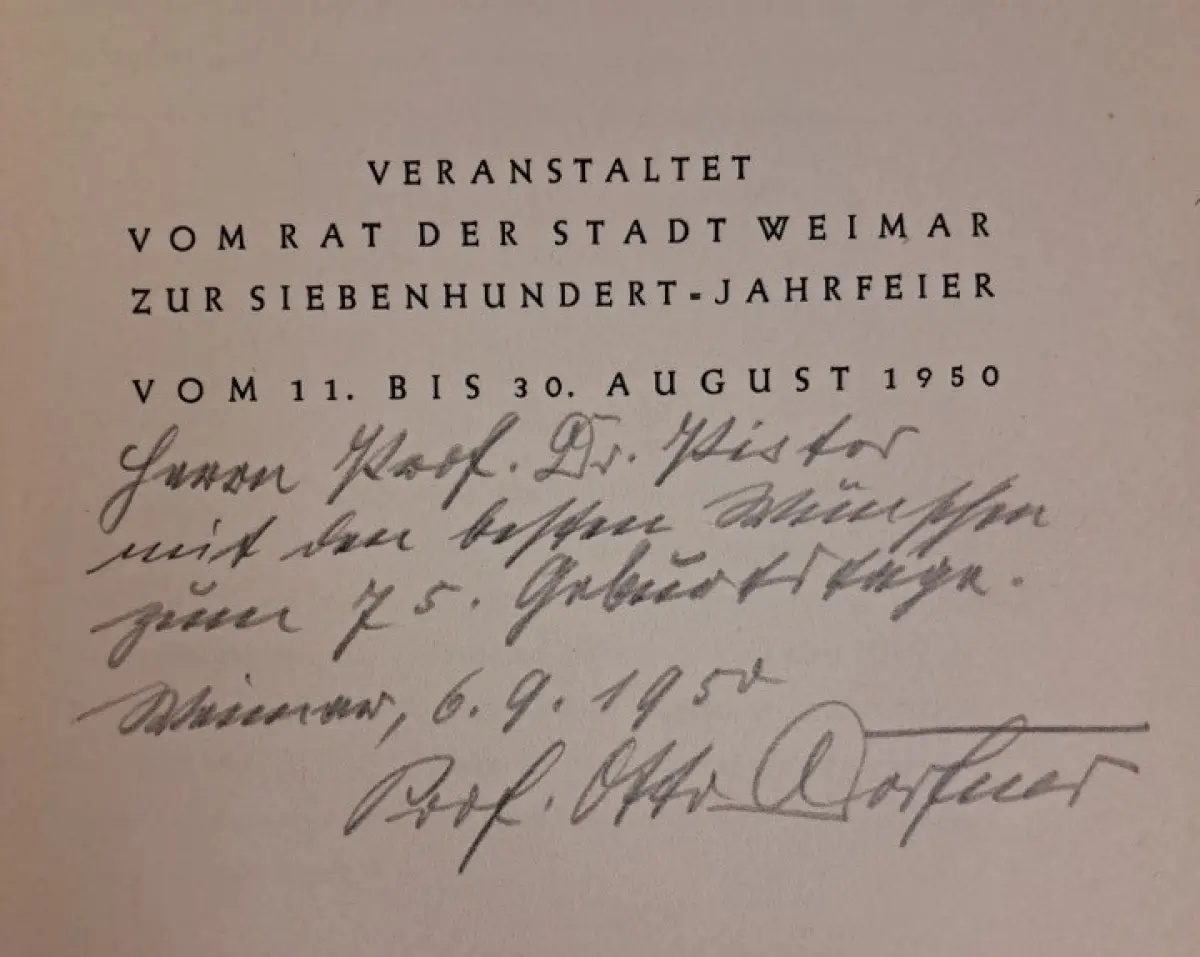 VERANSTALTET
VOM RAT DER STADT WEIMAR
ZUR SIEBENHUNDERT-JAHRFEIER
VOM 11. BIS 30. AUGUST 1950
Herrn Prof. Dr. Pistor
mit den besten Wünschen
zum 75. Geburtstage.
Weimar, 6.9.1950
Prof. Otto Dorfner